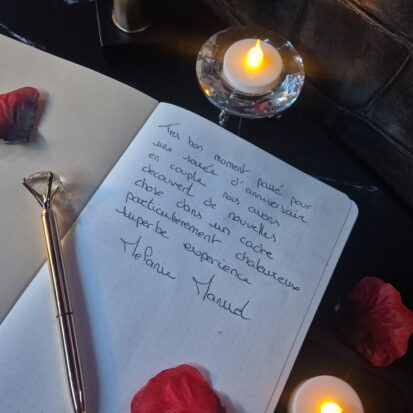 Tres bon moment passé pour
une soirée d'anniversaire
en couple nous avons
decouvert de nouvelles
chose dans un cadre
particulierement chaleureux
superbe experience
Melanie Manuel